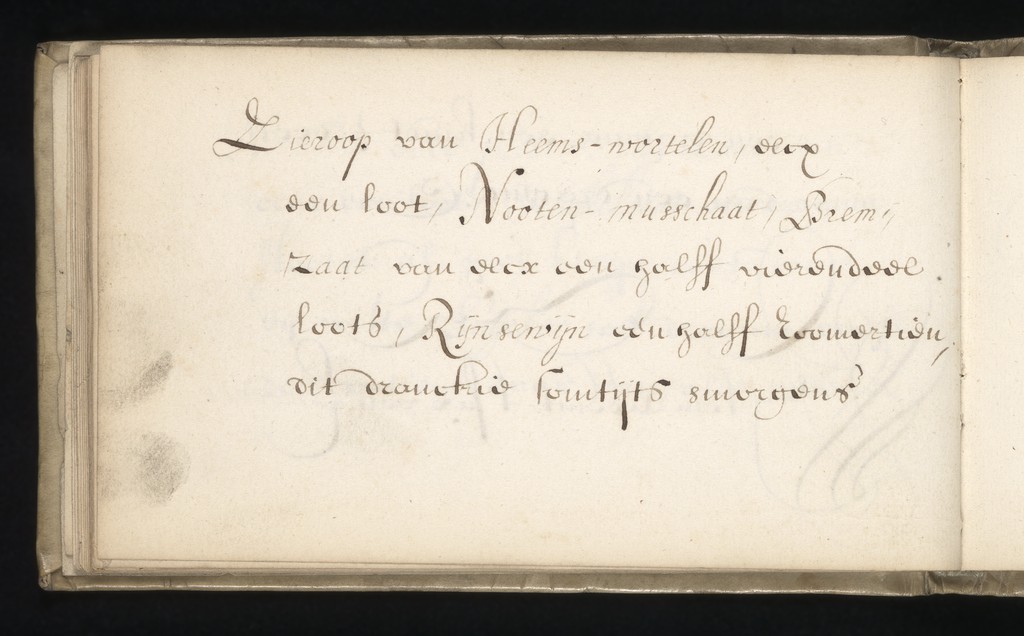 Zieroop van Heems-wortelen, elcx
een loot, Nooten-musschaat, Brem-
zaat van elcx een halff vierendeel
loots, Rijnsewijn een halff roomertien,
dit dranckie somtijts smorgens